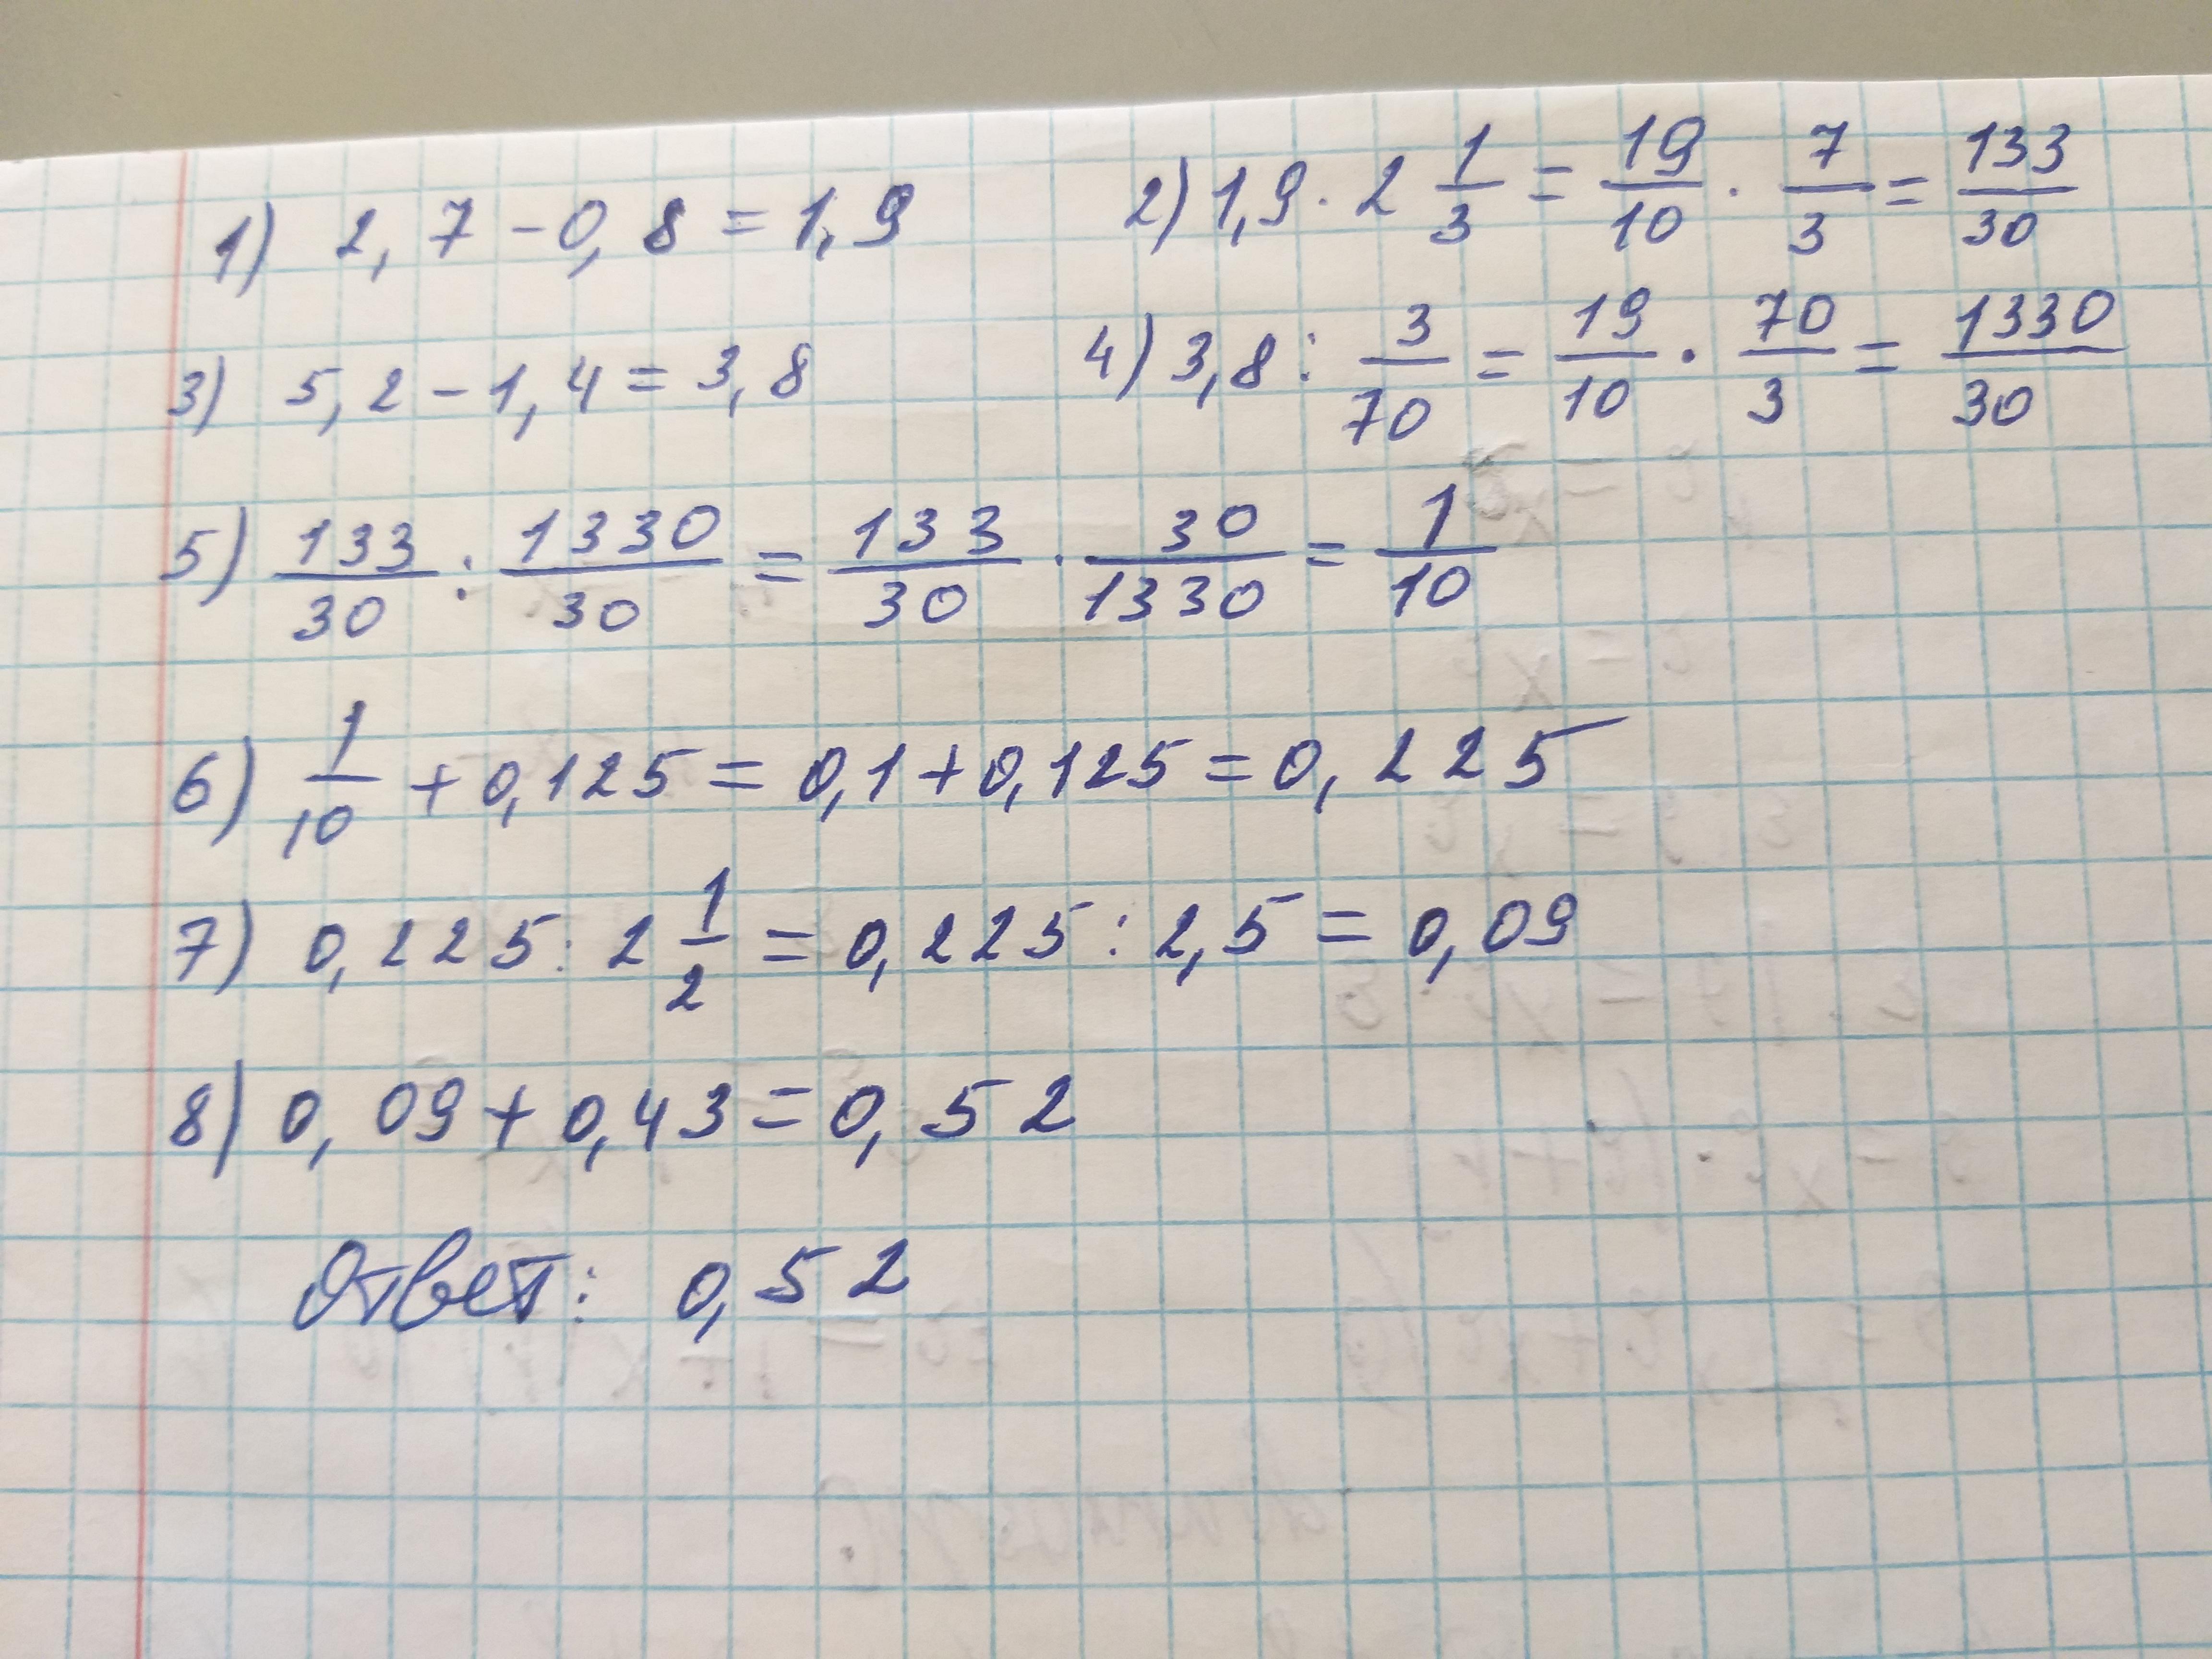 1) 2,7 - 0,8 = 1,9
2) 1,9 · 2 1/3 = 19/10 · 7/3 = 133/30
3) 5,2 - 1,4 = 3,8
4) 3,8 : 3/70 = 19/10 · 70/3 = 1330/30
5) 133/30 : 1330/30 = 133/30 · 30/1330 = 1/10
6) 1/10 + 0,125 = 0,1 + 0,125 = 0,225
7) 0,225 : 2 1/2 = 0,225 : 2,5 = 0,09
8) 0,09 + 0,43 = 0,52
Ответ: 0,52